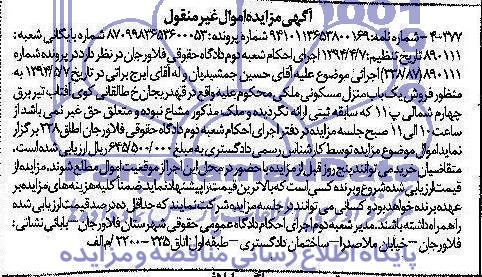 آگهی مزایده اموال غیر منقول
۴-۳۷۷- شماره نامه: ۹۴۱۰۱۱۳۶۵۳۸۰۰۱۶۹ شماره پرونده: ۸۷۰۹۹۸۳۶۵۳۶۰۰۰۵۳ شماره بایگانی شعبه:
۸۹۰۱۱۱ تاریخ تنظیم: ۱۳۹۴/۴/۷ اجرای احکام شعبه دوم دادگاه حقوقی فلاورجان در نظر دارد در پرونده شماره
۸۹۰۱۱۱ (۳۳۸/۸۷) اجرائی موضوع علیه آقای حسین جمشیدیان وله آقای ایرج براتی در تاریخ ۵/۷/۱۳۹۴ به
منظور فروش یک باب منزل مسکونی ملکی محکوم علیه واقع در قهدریجان خ طالقانی کوی آفتاب تیر برق
چهارم شمالی پ ۱۱ که سابقه ثبتی ارائه نگردیده و ملک مذکور مشاع نبوده و متعلق حق غیر نمی باشد از
ساعت ۱۰ الی ۱۱ صبح جلسه مزایده در دفتر اجرای احکام شعبه دوم دادگاه حقوقی فلاورجان اطاق ۲۳۸ برگزار
نماید اموال موضوع مزایده توسط کارشناس رسمی دادگستری به مبلغ ۶۴۵/۵۰۰/۰۰۰ ریال ارزیابی شده است.
متقاضیان خرید می توانند پنج روز قبل از مزایده با حضور در محل این اجرا از موقعیت اموال مطلع شوند. مزایده از
قیمت ارزیابی شده شروع و برنده کسی است که بالاترین قیمت را پیشنهاد نماید ضمنا کلیه هزینه های مزایده بر
عهده برنده خواهد بود و کسانی می توانند در جلسه مزایده شرکت نمایند که حداقل ده درصد قیمت ارزیابی شده
را همراه داشته باشند. مدیر شعبه دوم اجرای احکام دادگاه عمومی حقوقی شهرستان فلاورجان - بابائی نشانی:
فلاورجان - خیابان ملاصدرا - ساختمان دادگستری - طبقه اول اتاق ۲۳۵ - ۲۲۰۰/م الف
پایگاه اطلاع رسانی مناقصه و مزایده